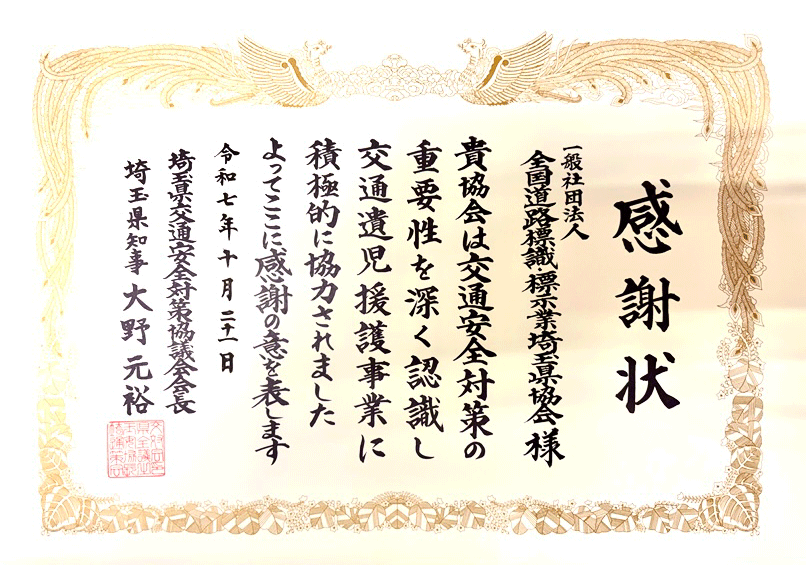 感謝状
一般社団法人
全国道路標識・標示業埼玉県協会様
貴協会は交通安全対策の
重要性を深く認識し
交通遺児援護事業に
積極的に協力されました
よってここに感謝の意を表します
令和七年十月二十一日
埼玉県交通安全対策協議会会長
埼玉県知事 大野元裕